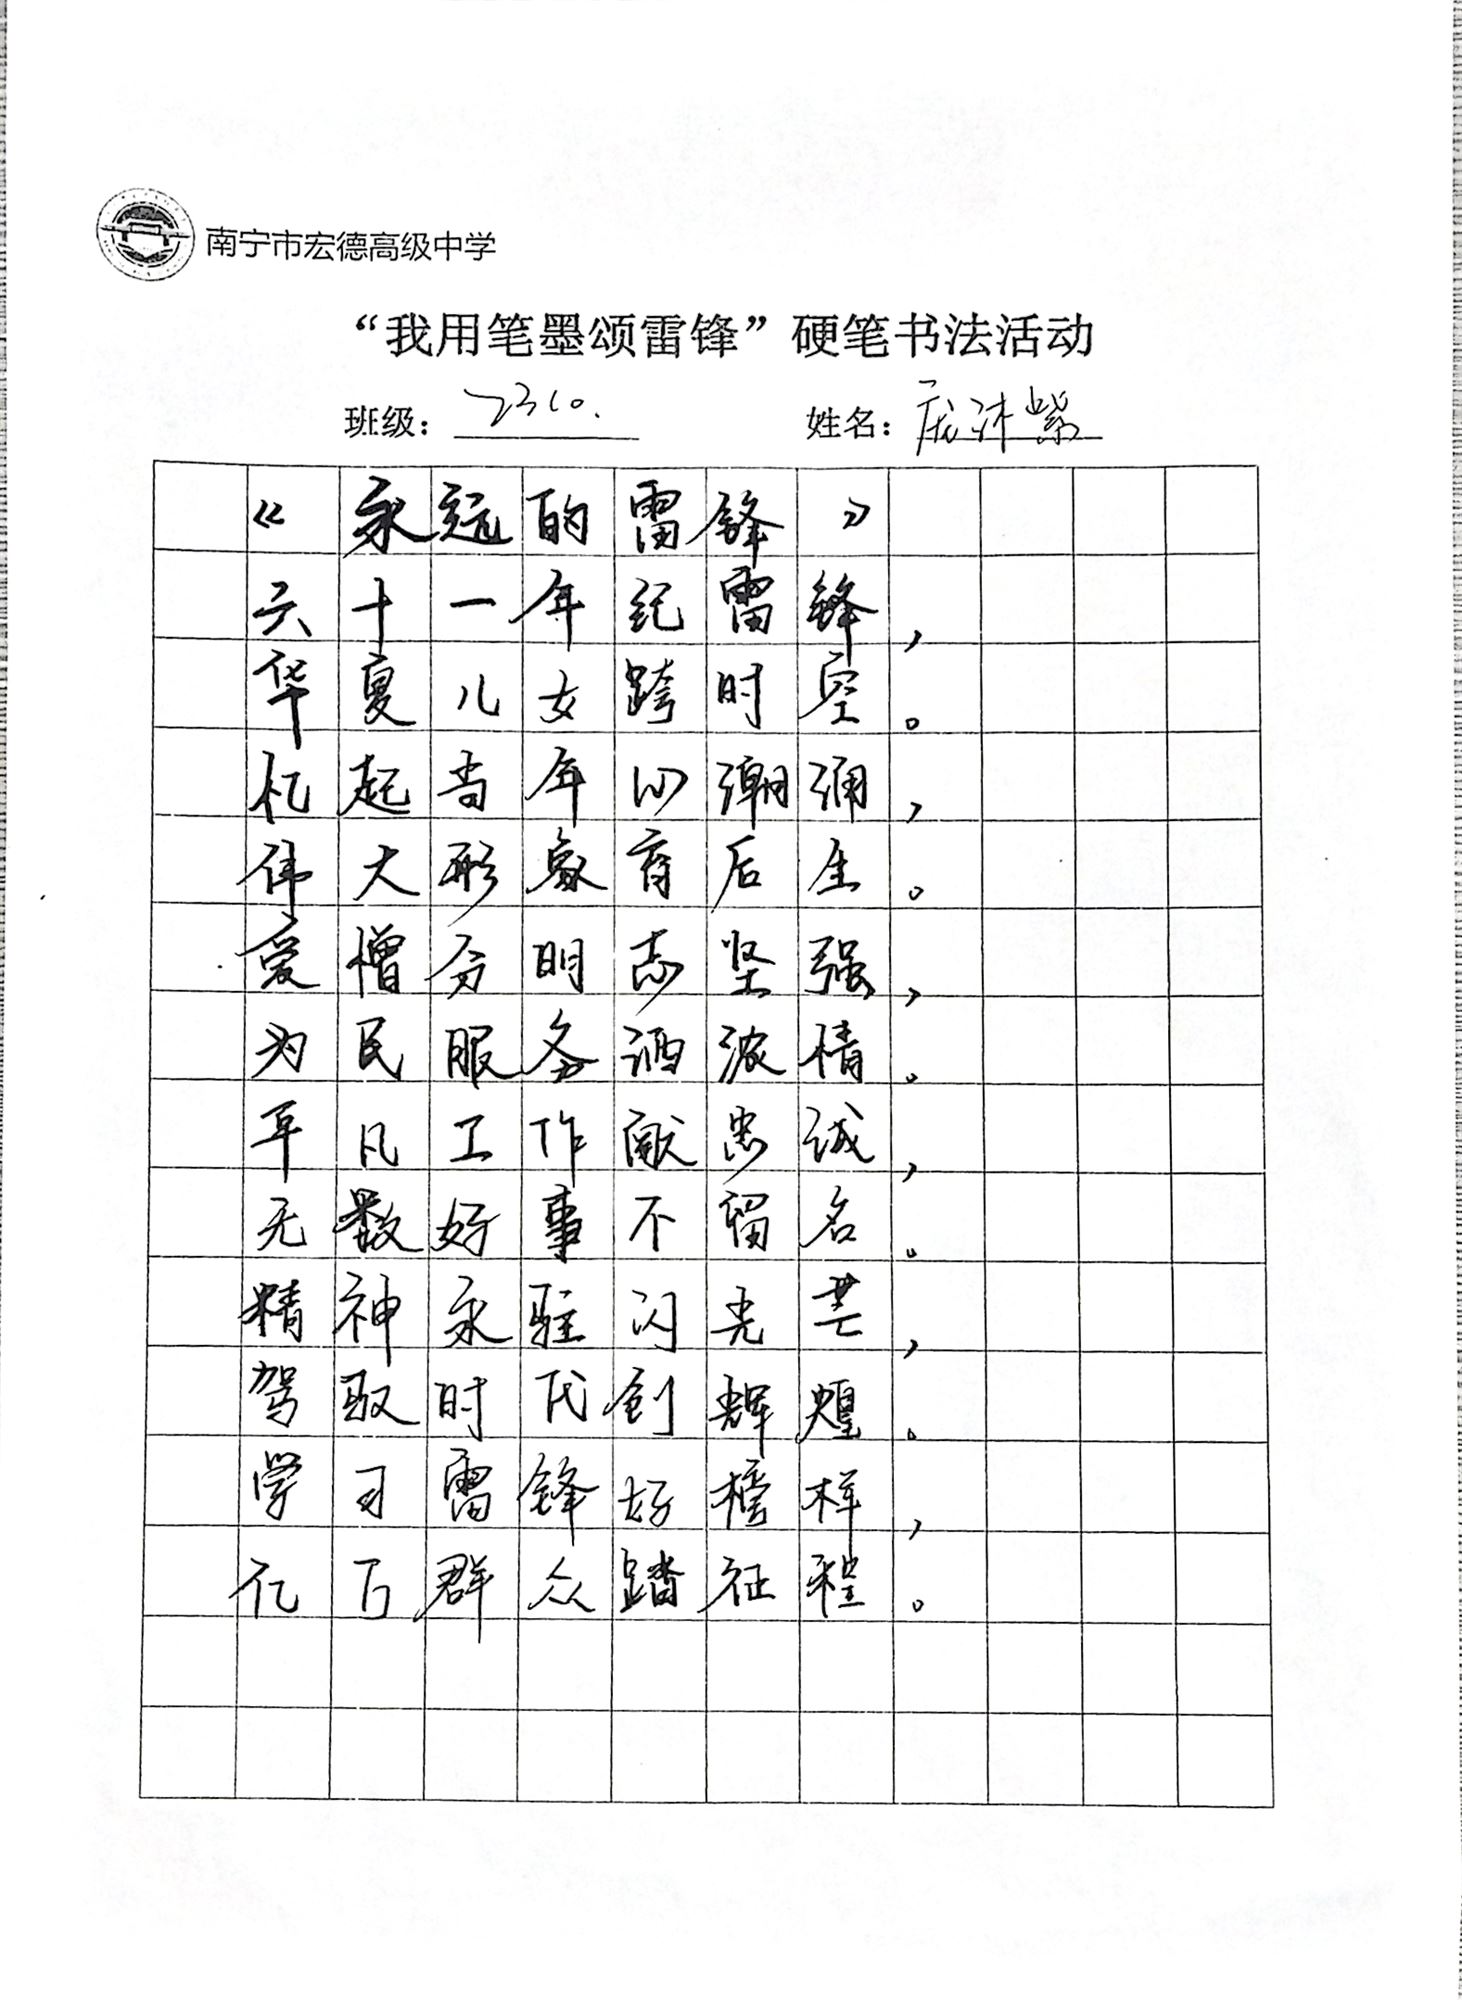 南宁市宏德高级中学
“我用笔墨颂雷锋”硬笔书法活动
班级：2310. 姓名：庞沐紫
《永远的雷锋》
六十一年纪雷锋，
华夏儿女跨时空。
忆起当年心潮涌，
伟大形象育后生。
爱憎分明志坚强，
为民服务洒浓情。
平凡工作献忠诚，
无数好事不留名。
精神永驻闪光芒，
驾驭时代创辉煌。
学习雷锋好榜样，
亿万群众踏征程。